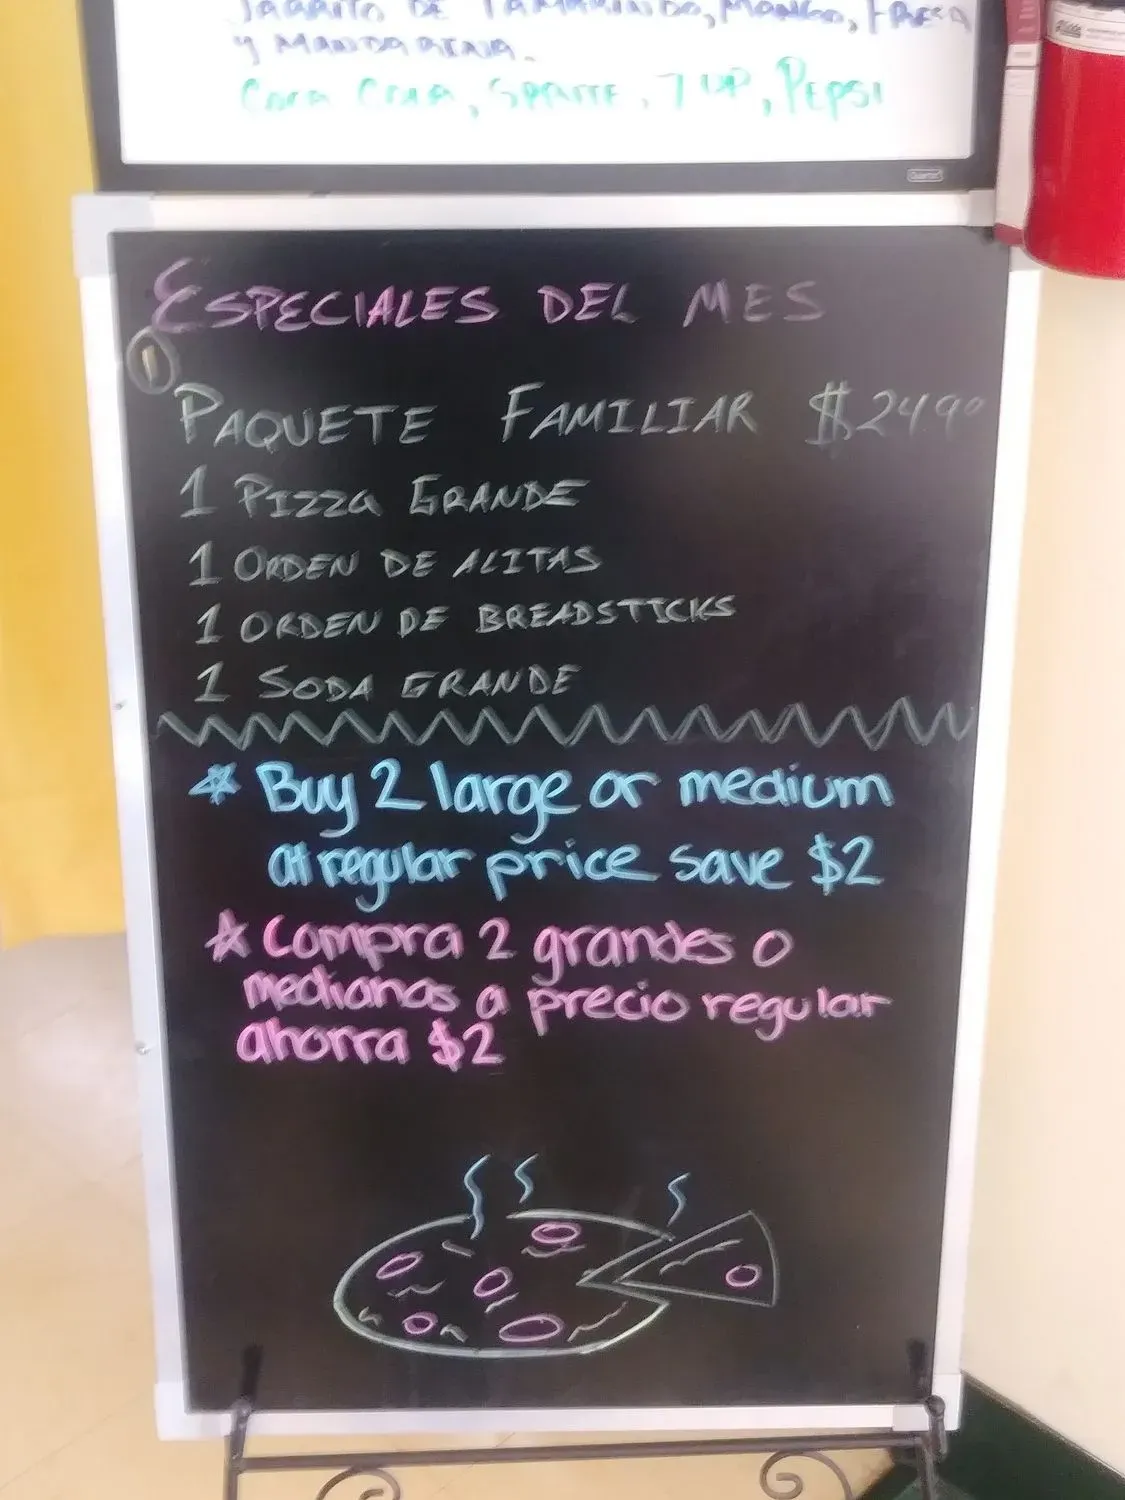 JARRITO DE TAMARINDO, MANGO, FRESA
Y MANDARINA.
COCA COLA, SPRITE, 7 UP, PEPSI
Quartet
ESPECIALES DEL MES
1
PAQUETE FAMILIAR $24.90
1 PIZZA GRANDE
1 ORDEN DE ALITAS
1 ORDEN DE BREADSTICKS
1 SODA GRANDE
Buy 2 large or medium
at regular price save $2
Compra 2 grandes o
medianas a precio regular
ahorra $2